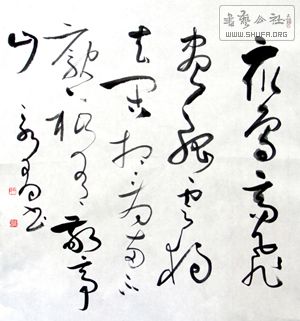 書藝公社
WWW.SHUFA.ORG
眾鳥高飛
盡孤云獨
去閑相看兩不
厭祇有敬亭
山